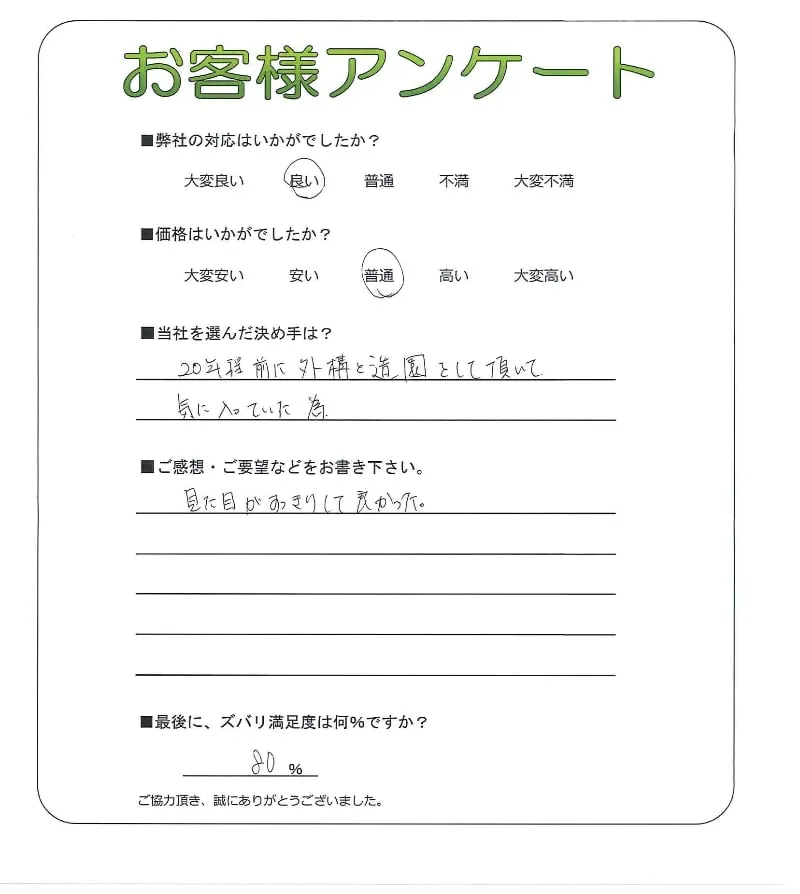 お客様アンケート
■弊社の対応はいかがでしたか？
大変良い 良い 普通 不満 大変不満
■価格はいかがでしたか？
大変安い 安い 普通 高い 大変高い
■当社を選んだ決め手は？
20年程前に外構と造園として頂いて
気に入っていた為
■ご感想・ご要望などをお書き下さい。
見た目がすっきりして良かった。
■最後に、ズバリ満足度は何%ですか？
80 %
ご協力頂き、誠にありがとうございました。